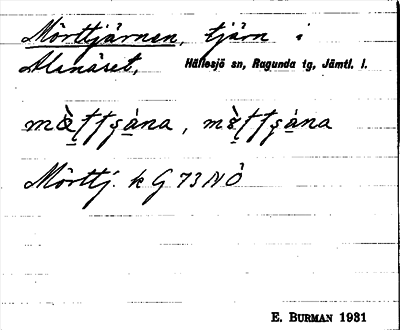 Mörttjärnen, tjärn i
Alanäset, Hällesjö sn, Ragunda tg, Jämtl. l.
Mörttj. k G 73 NÖ
E. BURMAN 1931